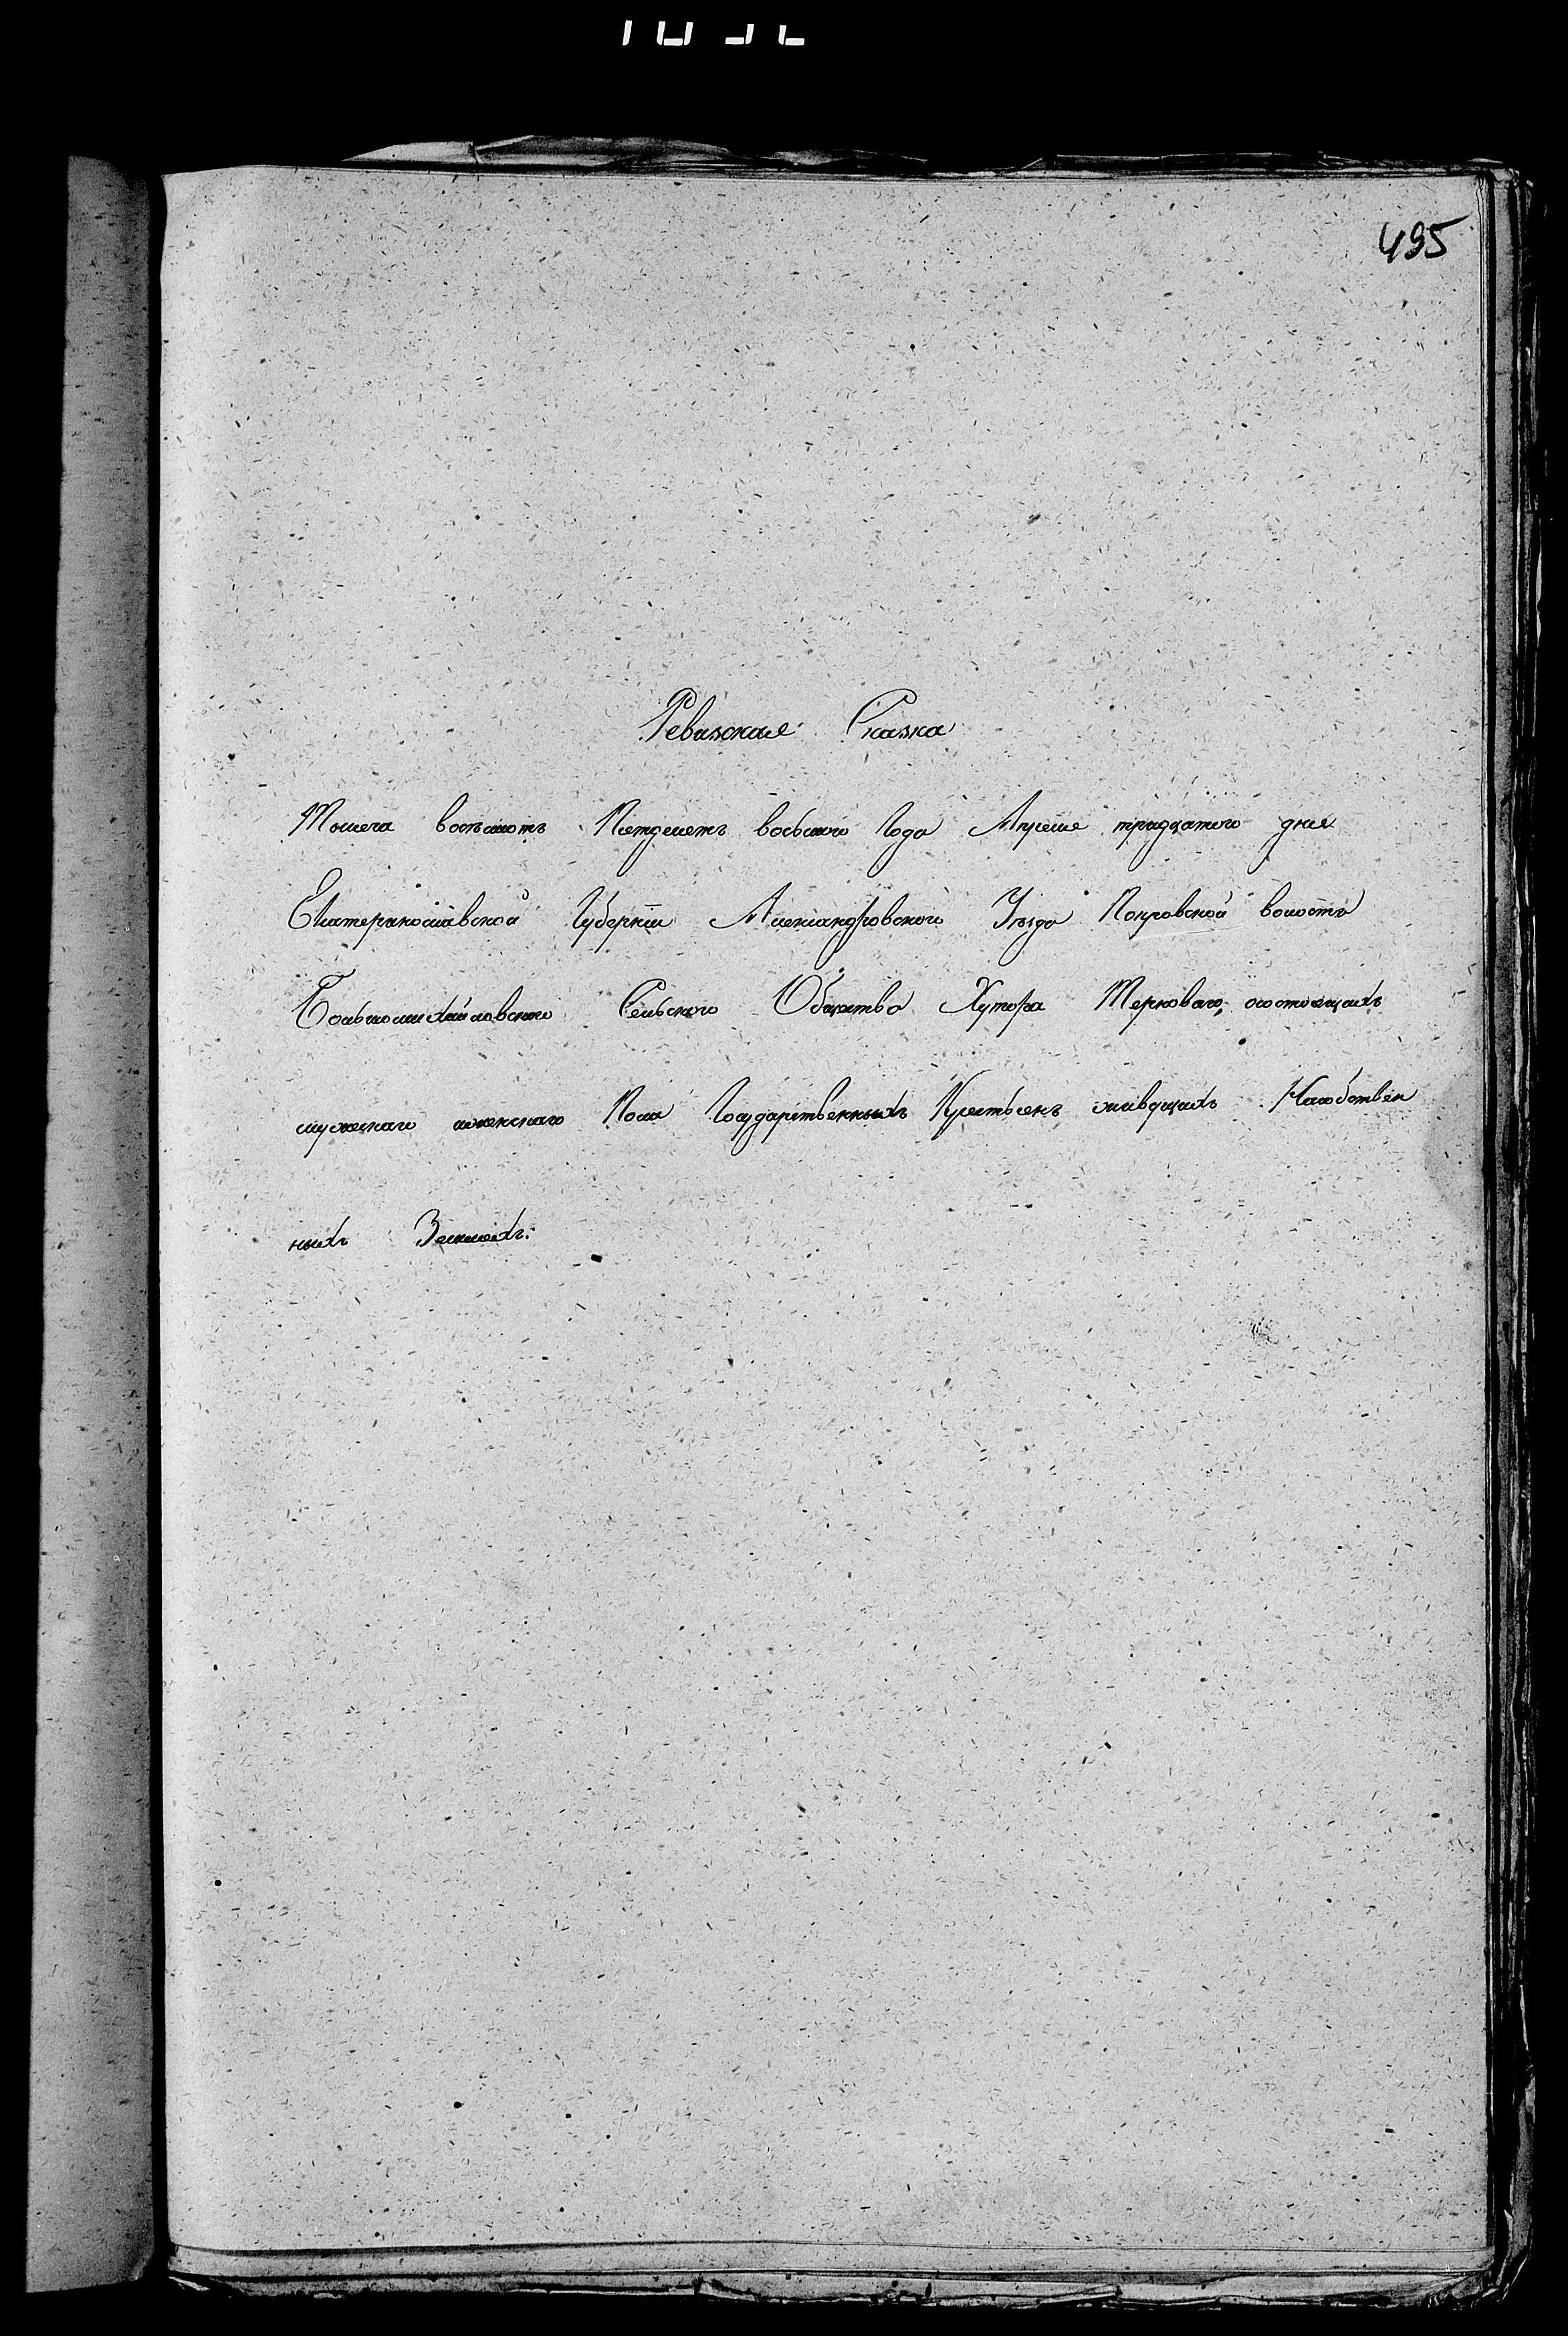 495
Ревизская Сказка
Тысеча восемьсотъ Петдесетъ восьмого Года Апреля тридцатого дня
Екатеринославской Губерніи Александровского Уѣзда Покровской волости
Большемихайловского Сельского Общества Хутора Терноваго, состоящихъ
мужескаго иженскаго Пола Государственныхъ Крестьянъ живущихъ Насобствен
ныхъ Земляхъ.